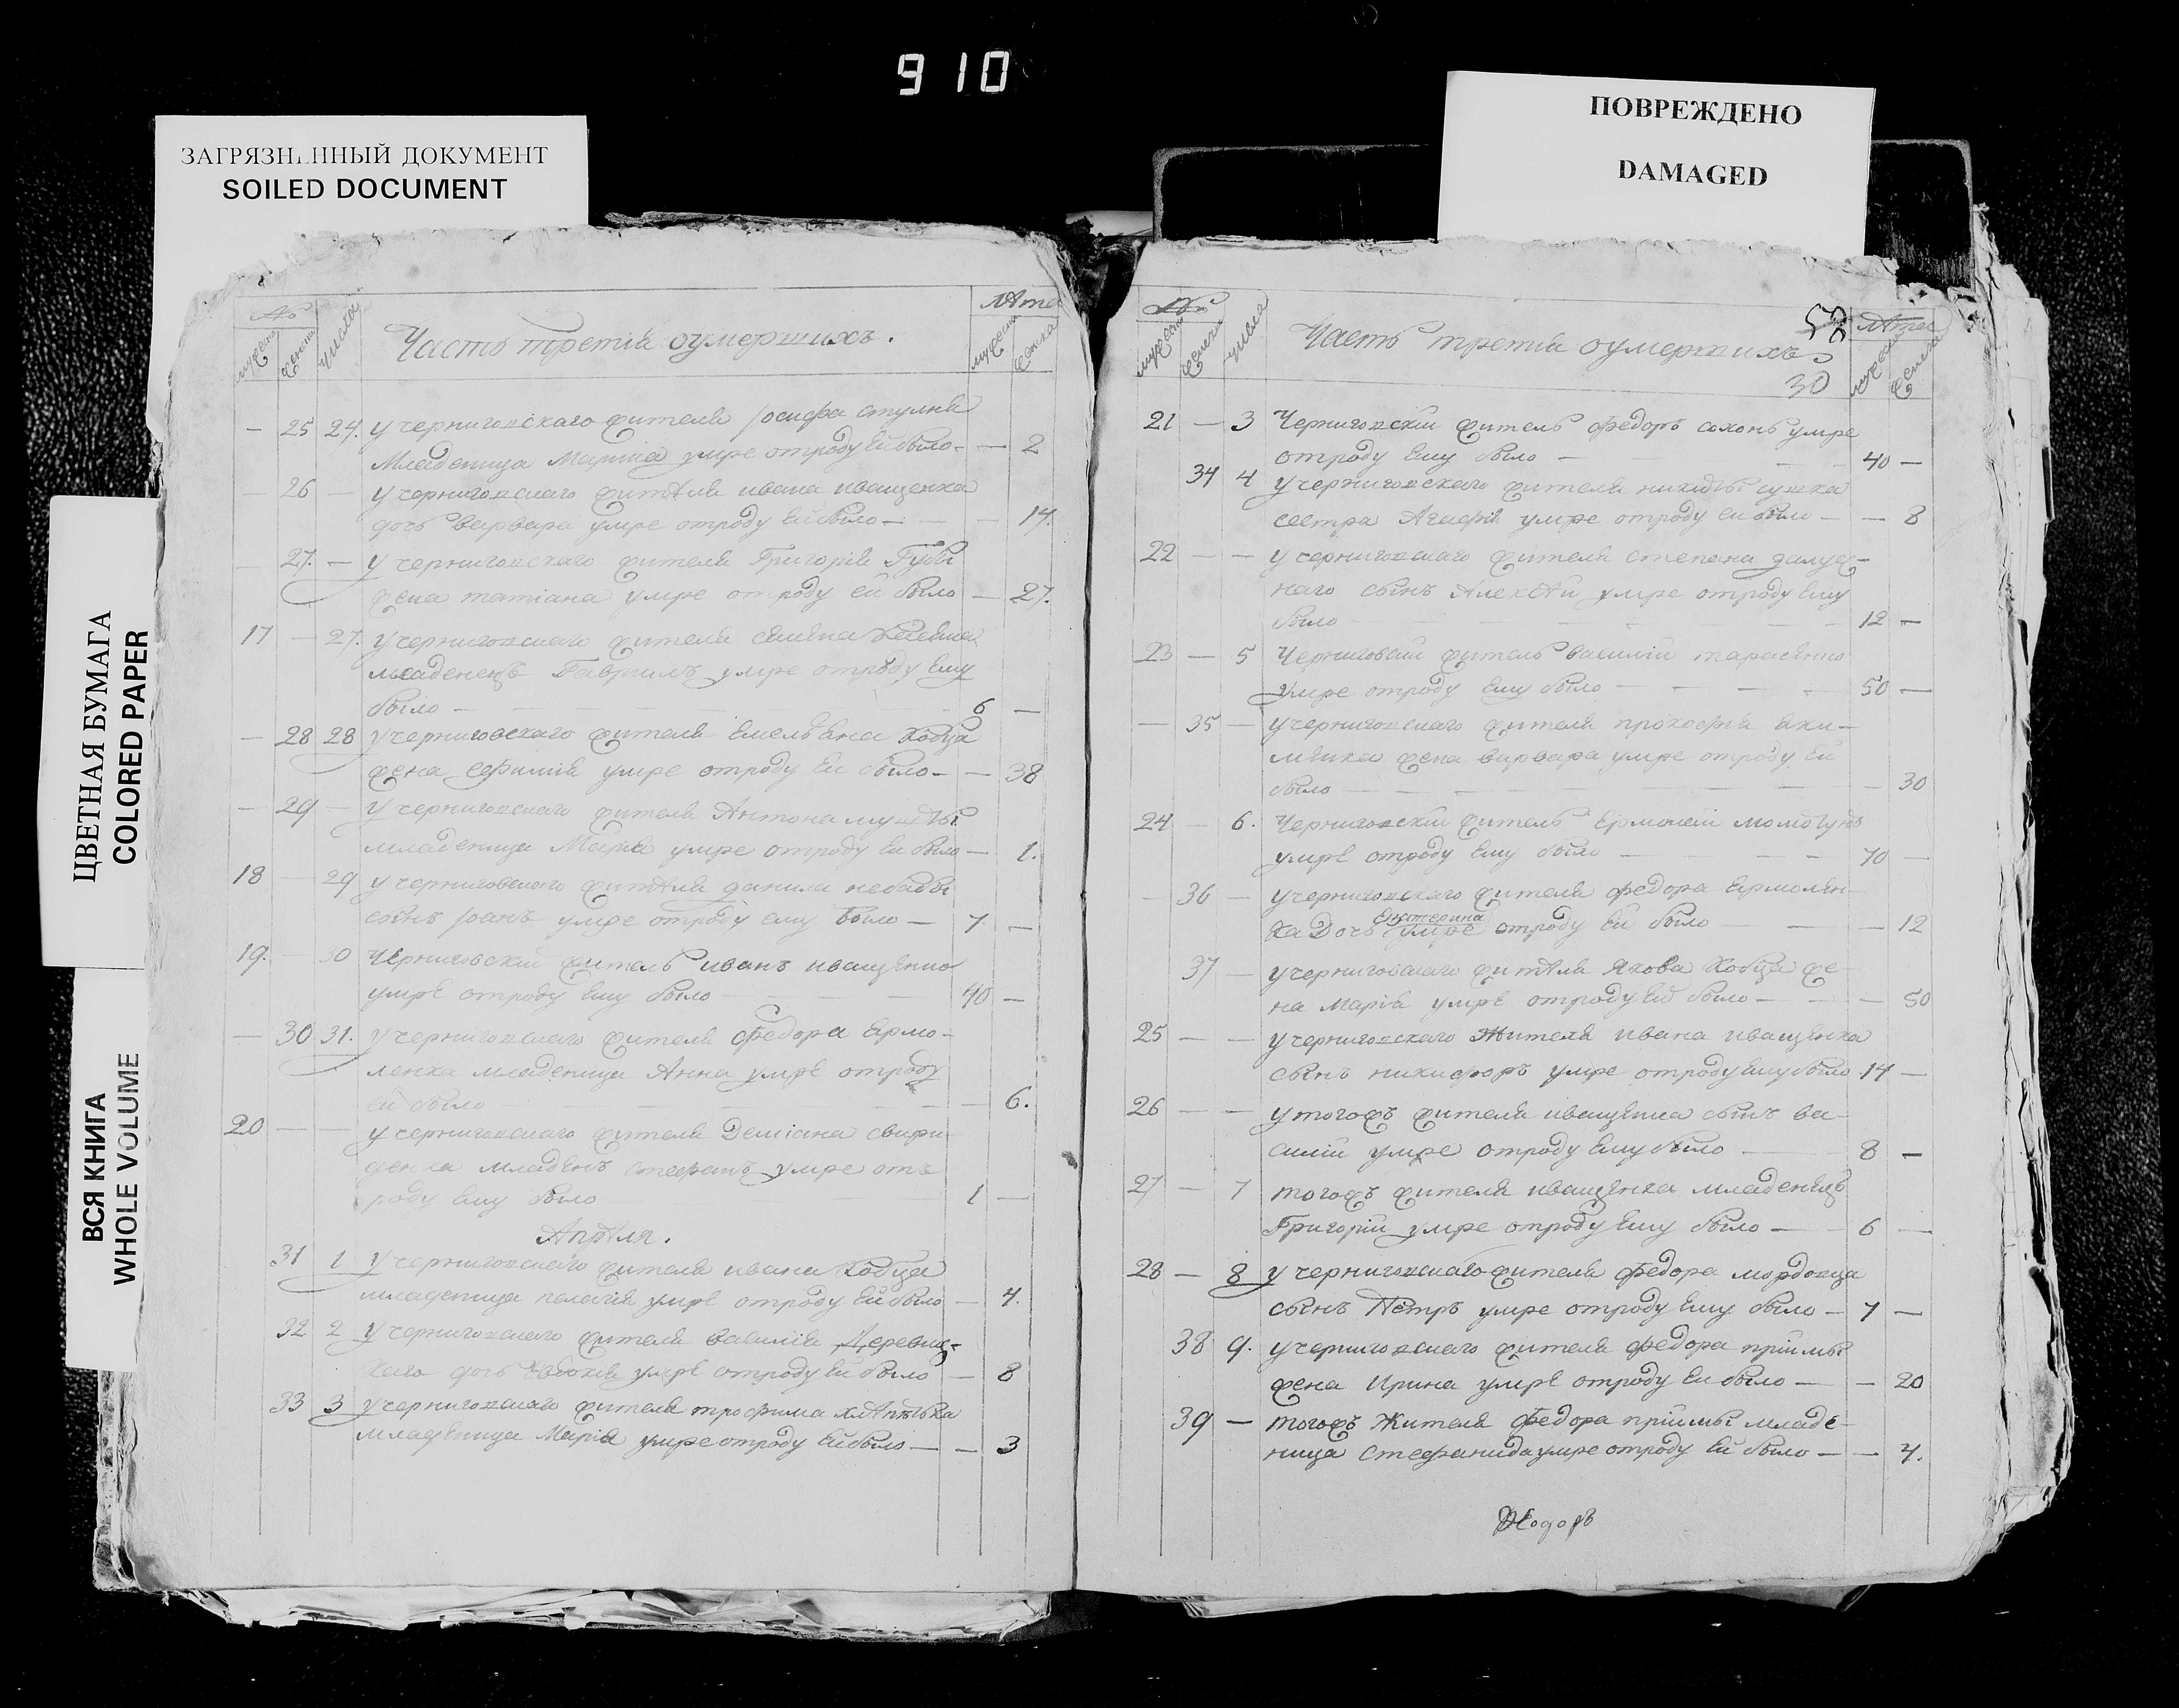 910
ЗАГРЯЗНЕННЫЙ ДОКУМЕНТ
SOILED DOCUMENT
ПОВРЕЖДЕНО
DAMAGED
ЦВЕТНАЯ БУМАГА
COLORED PAPER
ВСЯ КНИГА
WHOLE VOLUME
№ Числа Часть третія оумершихъ. лѣта
мужеска женска мужеска женска
— 25 24. У черниговскаго жителя Іосифа
Младеница Марина умре отроду Ей было — — 2
— 26 — У черниговскаго жителя ивана иващенка
дочь варвара умре отроду Ей было — — 14.
27. — У черниговскаго жителя Григорія Губы
жена татіана умре отроду ей было — 27.
17 — 27. У черниговскаго жителя семена
младенецъ Гавриилъ умре отроду Ему
было — 6 —
— 28 28 У черниговскаго жителя Емельяна Кобца
жена Ефимія умре отроду Ей было — — 38
— 29 — У черниговскаго жителя Антона
младеница Марія умре отроду Ей было — 1.
18 — 29 У черниговскаго жителя данила небабы
сынъ Іоанъ умре отроду ему было — 7 —
19. — 30 Черниговский житель иванъ иващенко
умре отроду Ему было 40 —
— 30 31. У черниговскаго жителя Федора Ермо-
ленка младеница Анна умре отроду
ей было — 6.
20 — — У черниговскаго жителя Деміана свири
денка младенъ стефанъ умре отъ
роду Ему было 1 —
Апрѣля.
31 1 У черниговскаго жителя ивана Кобца
младеница пелагія умре отроду Ей было — 4.
32 2 У черниговскаго жителя василія Деревяс-
каго дочь Евдокія умре отроду Ей было — 8
33 3 У черниговскаго жителя трофима
младеница Марія умре отроду Ей было — — 3
№ числа Часть третія оумершихъ 58 лѣта
мужеска женска 30 мужеска женска
21 — 3 Черниговскій житель федоръ сохонь умре
отроду Ему было — 40 —
34 4 У черниговскаго жителя никиты сушка
сестра Агафія умре отроду ей было — — 8
22 — — У черниговскаго жителя степана залуж-
наго сынъ Алексѣй умре отроду Ему
было 12 —
23 — 5 Черниговский житель василій тарасенко
Умре отроду Ему было — 50 —
— 35 — У черниговскаго жителя прокофія яки-
менка жена варвара умре отроду Ей
было — 30
24 — 6. Черниговскій житель Ермолай
умре отроду Ему было — 70 —
— 36 — У черниговскаго жителя федора Ермолен-
ка Дочь Екатерина умре отроду Ей было — 12
37 — У черниговскаго жителя Якова Кобца же
на Марія умре отроду Ей было — — 50
25 — — У черниговскаго Жителя ивана иващенка
сынъ никифоръ умре отроду Ему было 14 —
26 — — У тогожъ жителя иващенка сынъ ва-
силій умре отроду Ему было 8 —
27 — 7 тогожъ жителя иващенка младенецъ
Григорій умре отроду Ему было — 6 —
28 — 8 У черниговскаго жителя федора мордовца
сынъ Пётръ умре отроду Ему было — 7 —
38 9. У черниговскаго жителя федора приймы
жена Ирина умре отроду Ей было — — 20
39 — тогожъ Жителя федора приймы младе-
ница Стефанида умре отроду Ей было — — 4.